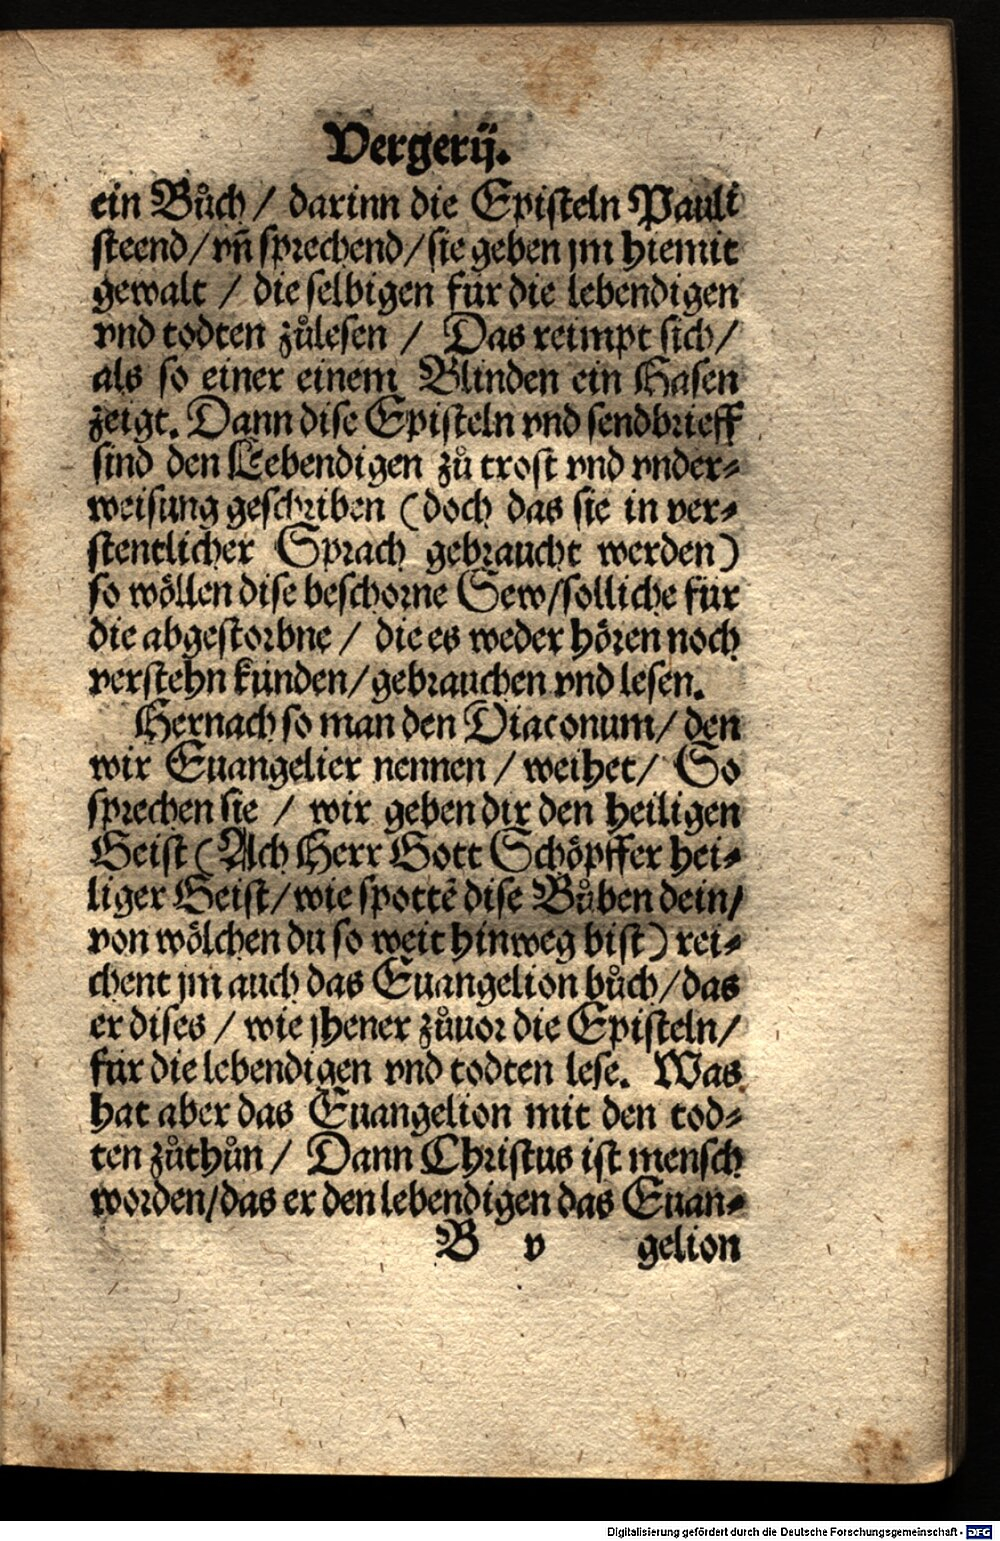 Vergerij.
ein Bůch / darinn die Episteln Pauli
steend / vñ sprechend / sie geben jm hiemit
gewalt / die selbigen für die lebendigen
vnd todten zůlesen / Das reimpt sich /
als so einer einem Blinden ein Hasen
zeigt. Dann dise Episteln vnd sendbrieff
sind den Lebendigen zů trost vnd vnder⸗
weisung geschriben (doch das sie in ver⸗
stentlicher Sprach gebraucht werden)
so wöllen dise beschorne Sew / solliche für
die abgestorbne / die es weder hören noch
verstehn künden / gebrauchen vnd lesen.
Hernach so man den Diaconum / den
wir Euangelier nennen / weihet / So
sprechen sie / wir geben dir den heiligen
Geist (Ach Herr Gott Schöpffer hei⸗
liger Geist / wie spottē dise Bůben dein /
von wölchen du so weit hinweg bist) rei⸗
chent jm auch das Euangelion bůch / das
er dises / wie jhener zůuor die Episteln /
für die lebendigen vnd todten lese. Was
hat aber das Euangelion mit den tod⸗
ten zůthůn / Dann Christus ist mensch
worden / das er den lebendigen das Euan⸗
B v gelion
Digitalisierung gefördert durch die Deutsche Forschungsgemeinschaft - DFG